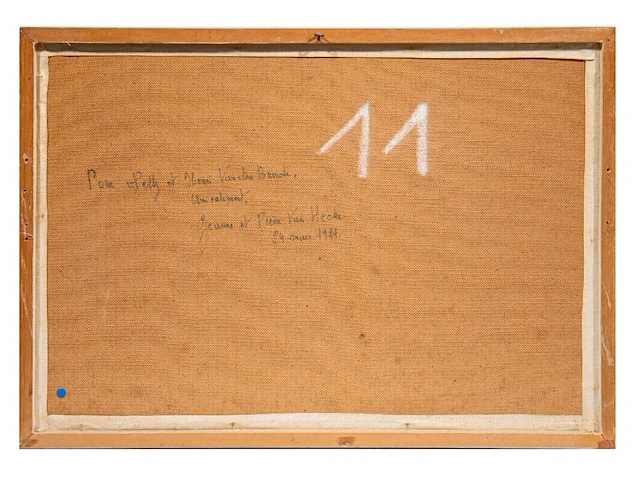 11
Pour Nelly et Henri Vanden Bande,
amicalement,
Jeanne et Pierre Van Hecke
29 mars 19